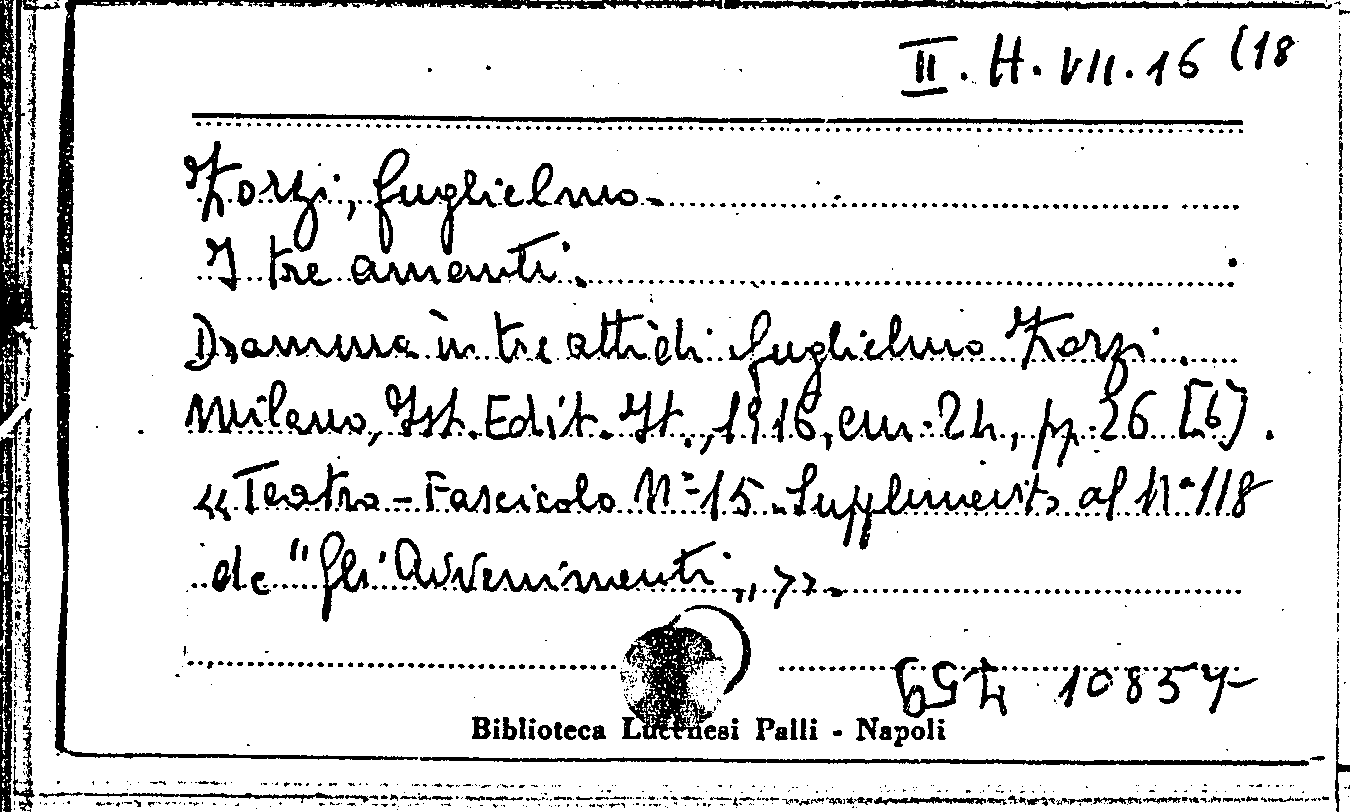 II. H. VII. 16 (18
Zorzi, Guglielmo.
I tre amanti.
Dramma in tre atti di Guglielmo Zorzi.
Milano, Ist. Edit. It., 1916, cm. 24, pp. 26 [6].
«Teatro - Fascicolo N° 15. Supplemento al N° 118
de "Gli Avvenimenti„».
10857
Biblioteca Lucchesi Palli - Napoli